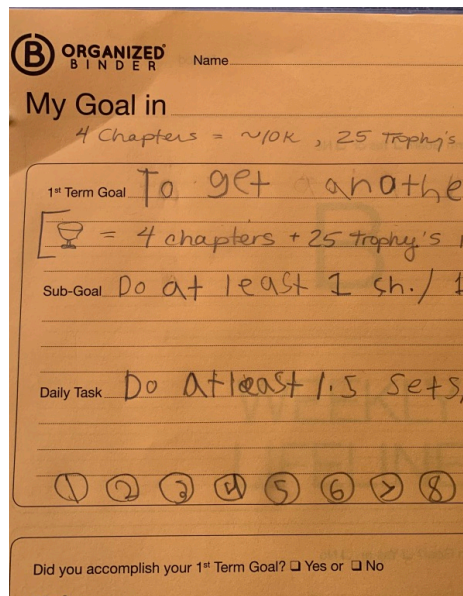 B ORGANIZED
BINDER
Name
My Goal in
4 Chapters = ~10K, 25 Trophy's
1st Term Goal To get anothe
= 4 chapters + 25 trophy's
Sub-Goal Do at least 1 sh./ 1
Daily Task Do atleast 1.5 sets,
WEEKLY
LIFELINE
1 2 3 4 5 6 7 8
Did you accomplish your 1st Term Goal? ☐ Yes or ☐ No